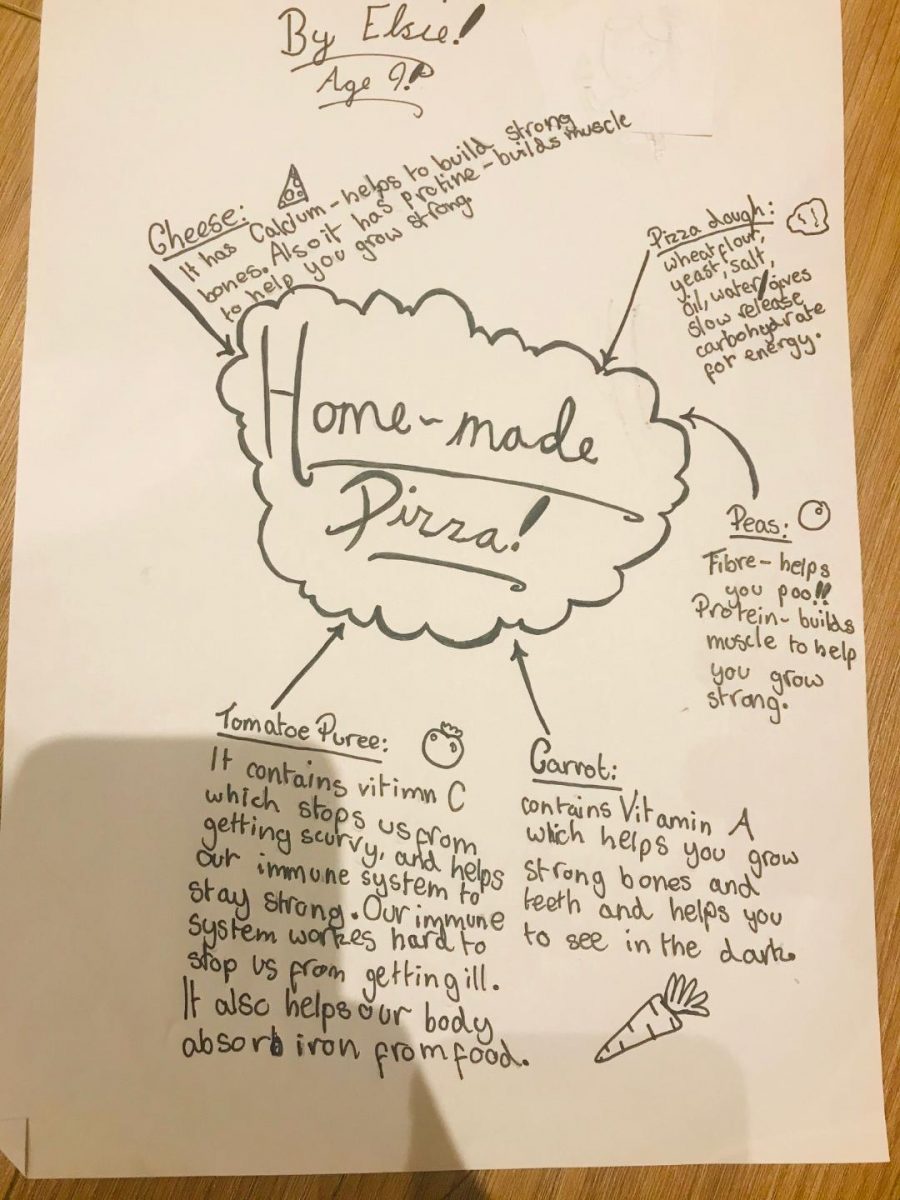 By Elsie!
Age 9!
Cheese:
It has Calcium - helps to build strong
bones. Also it has protine - builds muscle
to help you grow strong.
Pizza dough:
wheat flour,
yeast, salt,
oil, water/gives
slow release
carbohydrate
for energy.
Home-made
Pizza!
Peas:
Fibre - helps
you poo!!
Protein - builds
muscle to help
you grow
strong.
Tomatoe Puree:
It contains vitimn C
which stops us from
getting scurvy, and helps
our immune system to
stay strong. Our immune
system workes hard to
stop us from getting ill.
It also helps our body
absorb iron from food.
Carrot:
contains Vitamin A
which helps you grow
strong bones and
teeth and helps you
to see in the dark.